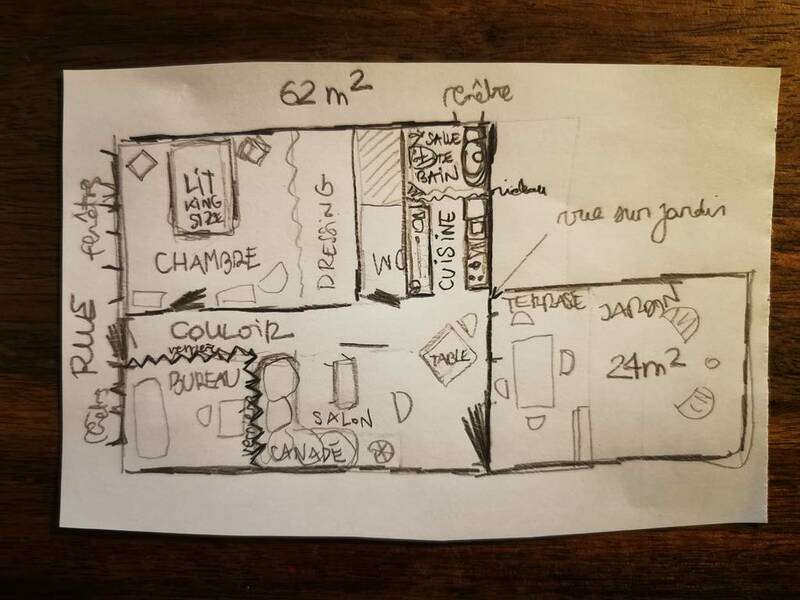 62 m²
fenêtre
SALLE
DE
BAIN
rideau
LIT
KING
SIZE
DRESSING
fenêtre
CHAMBRE
WC
CUISINE
vue sur jardin
RUE
COULOIR
TERRASE
JARDIN
verrière
BUREAU
TABLE
24m²
SALON
CANAPÉ